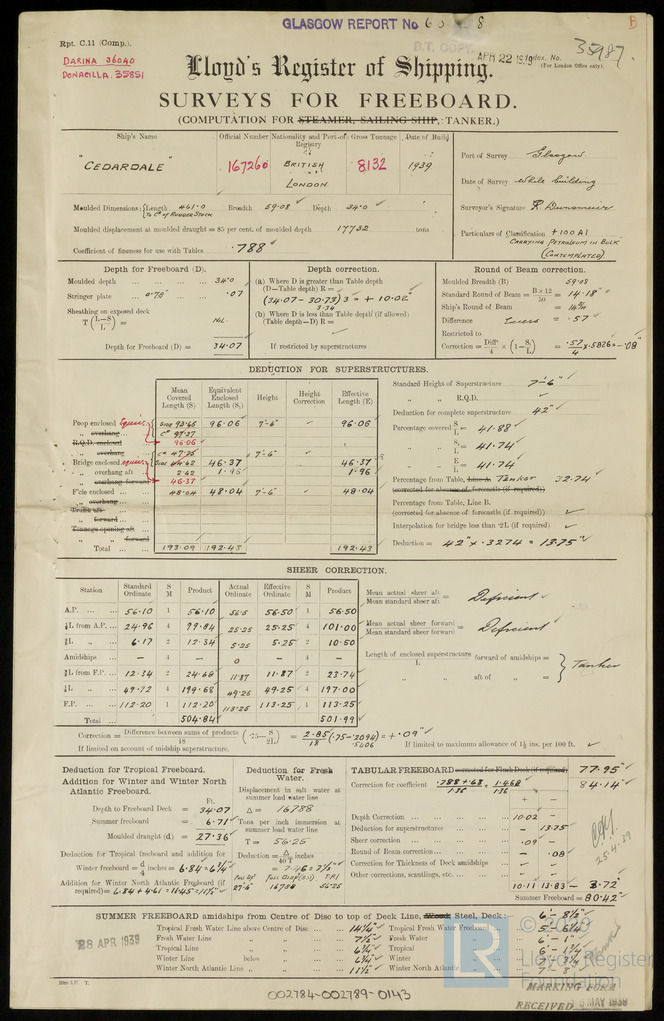 GLASGOW REPORT No 6
8
B
Rpt. C.11 (Comp.).
B.T. COPY
APR 22 1939
Index. No. 35987.
(For London Office only).
DARINA 36040
DONACILLA. 35851
Lloyd's Register of Shipping.
SURVEYS FOR FREEBOARD.
(COMPUTATION FOR STEAMER, SAILING SHIP, TANKER.)
Ship's Name Official Number Nationality and Port of Registry Gross Tonnage Date of Build
"CEDARDALE" 167260 BRITISH LONDON 8132 1939
Port of Survey Glasgow
Date of Survey While building
Surveyor's Signature
Particulars of Classification +100A1
CARRYING PETROLEUM IN BULK
(CONTEMPLATED)
Moulded Dimensions: Length 461.0 Breadth 59.08 Depth 34.0
To Cr of RUDDER STOCK
Moulded displacement at moulded draught = 85 per cent. of moulded depth 17732 tons
Coefficient of fineness for use with Tables .788
Depth for Freeboard (D).
Moulded depth ... 34.0
Stringer plate 0.78" .07
Sheathing on exposed deck
T (L-S/L) = NIL.
Depth for Freeboard (D) = 34.07
Depth correction.
(a) Where D is greater than Table depth
(D—Table depth) R =
(34.07 - 30.73) 3 = + 10.02"
3.34
(b) Where D is less than Table depth (if allowed)
(Table depth—D) R =
If restricted by superstructures
Round of Beam correction.
Moulded Breadth (B) 59.08
Standard Round of Beam = B×12/50 = 14.18"
Ship's Round of Beam =
Difference Excess = .57
Restricted to
Correction = Diffce/4 × (1-S1/L) = .57/4 × .5826 = -.08"
DEDUCTION FOR SUPERSTRUCTURES.
Mean Covered Length (S) Equivalent Enclosed Length (S1) Height Height Correction Effective Length (E)
Poop enclosed 96.06 7'-6" 96.06
„ overhang
R.Q.D. enclosed 96.06
„ overhang
Bridge enclosed 46.37 7'-6" 46.37
„ overhang aft 2.62 1.96 1.96
„ overhang forward 46.37
F'cle enclosed 48.04 48.04 7'-6" 48.04
„ overhang
Trunk aft
„ forward
Tonnage opening aft
„ forward
Total 193.09 192.43 192.43
Standard Height of Superstructure 7'-6"
„ „ R.Q.D.
Deduction for complete superstructure 42"
Percentage covered S/L = 41.88
„ S1/L = 41.74
„ E/L = 41.74
Percentage from Table, Line A. Tanker 32.74
(corrected for absence of forecastle (if required))
Percentage from Table, Line B.
(corrected for absence of forecastle (if required))
Interpolation for bridge less than .2L (if required)
Deduction = 42" × .3274 = 13.75"
SHEER CORRECTION.
Station Standard Ordinate S M Product Actual Ordinate Effective Ordinate S M Product
A.P. 56.10 1 56.10 56.5 56.50 1 56.50
⅙L from A.P. 24.96 4 99.84 25.25 25.25 4 101.00
⅓L „ 6.17 2 12.34 5.25 5.25 2 10.50
Amidships — 4 — 0 — 4 —
⅓L from F.P. 12.34 2 24.68 11.87 11.87 2 23.74
⅙L „ 49.72 4 199.68 49.25 49.25 4 197.00
F.P. 112.20 1 112.20 113.25 113.25 1 113.25
Total 504.84 501.99
Mean actual sheer aft / Mean standard sheer aft = Deficient
Mean actual sheer forward / Mean standard sheer forward = Deficient
Length of enclosed superstructure forward of amidships / L =
„ aft of „ = Tanker
Correction = Difference between sums of products/18 (.75—S/2L) = 2.85/18 (.75-.2094) = +.09"
.5406
If limited on account of midship superstructure.
If limited to maximum allowance of 1½ ins. per 100 ft.
Deduction for Tropical Freeboard.
Addition for Winter and Winter North Atlantic Freeboard.
Ft.
Depth to Freeboard Deck = 34.07
Summer freeboard = 6.71
Moulded draught (d) = 27.36
Deduction for Tropical freeboard and addition for
Winter freeboard = d/4 inches = 6.84 = 6¾"
Addition for Winter North Atlantic Freeboard (if required) = 6.84 + 4.61 = 11.45 = 11½"
Deduction for Fresh Water.
Displacement in salt water at summer load water line
Δ = 16788
Tons per inch immersion at summer load water line
T = 56.25
Deduction = Δ/40T inches
= 7.46 = 7½"
TABULAR FREEBOARD corrected for Flush Deck (if required) 77.95"
Correction for coefficient .788+.68/1.36 1.468/1.36 84.14"
+ −
Depth Correction 10.02 −
Deduction for superstructures − 13.75
Sheer correction .09 −
Round of Beam correction − .08
Correction for Thickness of Deck amidships
Other corrections, scantlings, etc.
10.11 13.83 − 3.72"
Summer Freeboard = 80.42"
25.4.39
SUMMER FREEBOARD amidships from Centre of Disc to top of Deck Line, Wood Steel, Deck: 6' - 8½"
Tropical Fresh Water Line above Centre of Disc 14¼" Tropical Fresh Water Freeboard 5' - 6¼"
Fresh Water Line „ 7½" Fresh Water „ 6' - 1"
Tropical Line „ 6¾" Tropical „ 6' - 1¾"
Winter Line below 6¾" Winter „ 7' - 3¼"
Winter North Atlantic Line „ 11½" Winter North Atlantic „ 7' - 8"
28 APR 1939
© 2020
LR
Lloyd's Register
Foundation
MARKING FORM
RECEIVED MAY 1939
002784-002789-0143